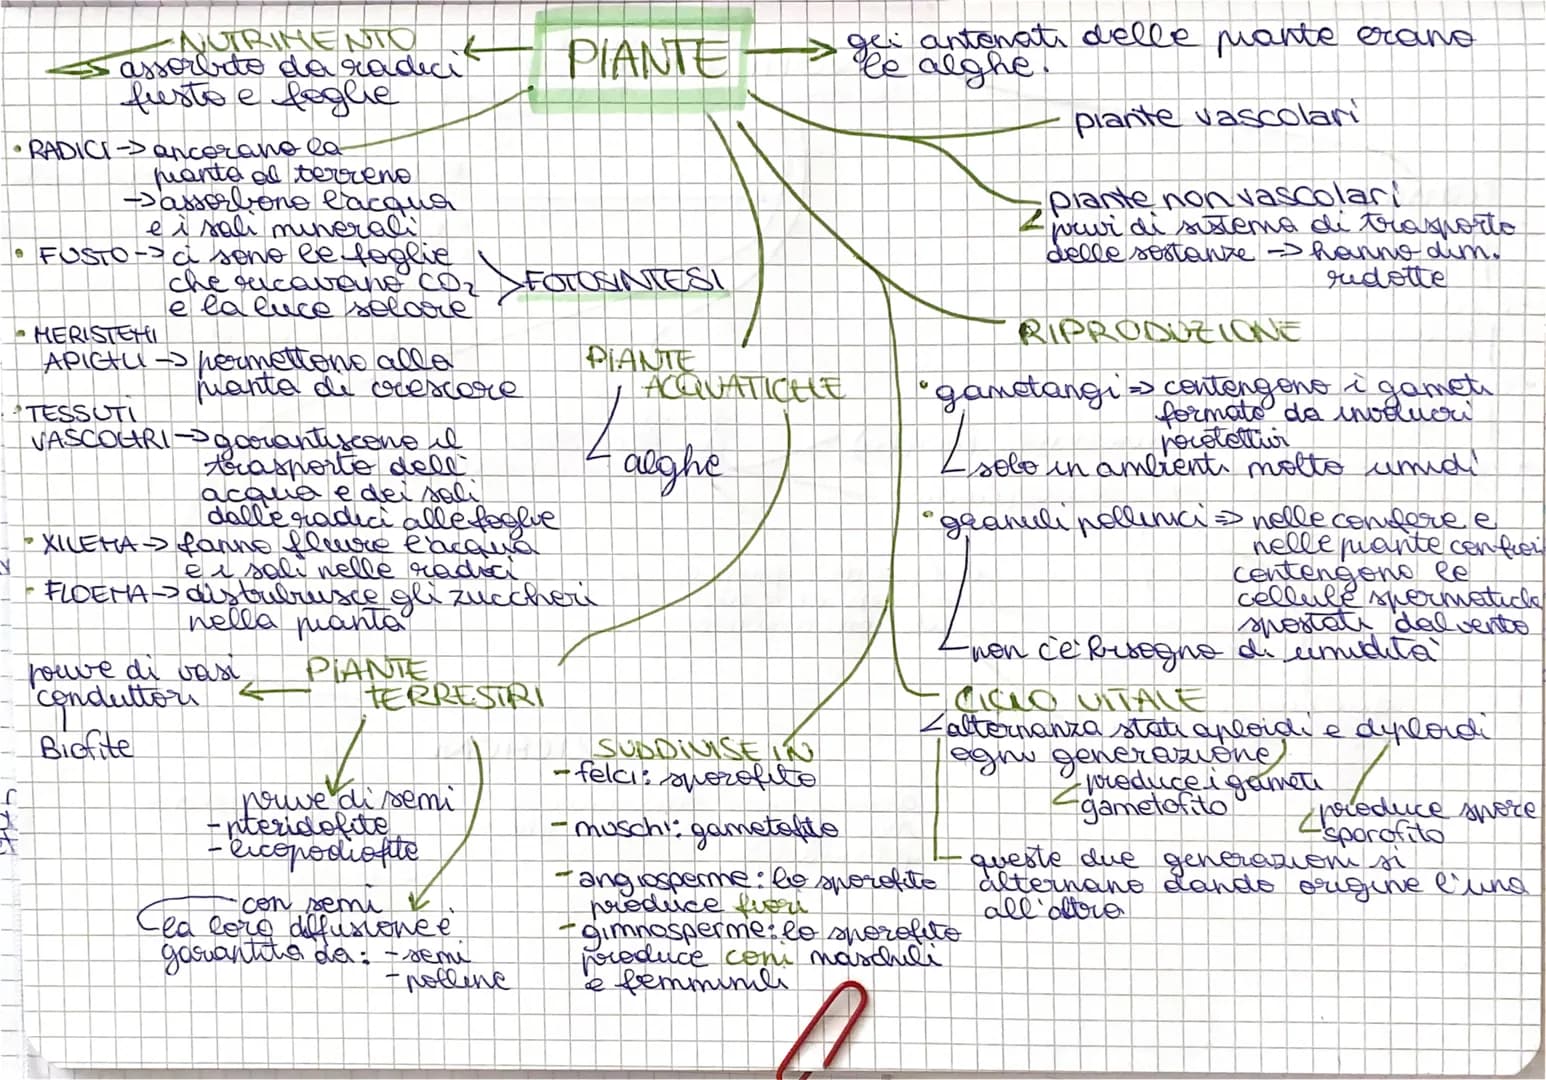 PIANTE
NUTRIMENTO
assorbito da radici
fusto e foglie
gli antenati delle piante erano
le alghe.
piante vascolari
piante non vascolari
privi di sistema di trasporto
delle sostanze -> hanno dim.
ridotte
• RADICI -> ancorano la
pianta al terreno
-> assorbono l'acqua
e i sali minerali
• FUSTO -> ci sono le foglie
che ricavano CO₂
e la luce solare
FOTOSINTESI
• MERISTEMI
APICALI -> permettono alla
pianta di crescere
• TESSUTI
VASCOLARI -> garantiscono il
trasporto dell'
acqua e dei sali
dalle radici alle foglie
• XILEMA -> fanno fluire l'acqua
e i sali nelle radici
• FLOEMA -> distribuisce gli zuccheri
nella pianta
PIANTE
ACQUATICHE
alghe
RIPRODUZIONE
• gametangi => contengono i gameti
formato da involucri
protettivi
solo in ambienti molto umidi
• granuli pollinici => nelle conifere e
nelle piante con fiori
contengono le
cellule spermatiche
spostati dal vento
non c'è bisogno di umidità
PIANTE
TERRESTRI
prive di vasi
conduttori
Biofite
prive di semi
- pteridofite
- licopodiofite
con semi
la loro diffusione è
garantita da: - semi
- polline
SUDDIVISE IN
- felci: sporofito
- muschi: gametofito
- angiosperme: lo sporofito
produce fiori
- gimnosperme: lo sporofito
produce coni maschili
e femminili
CICLO VITALE
alternanza stati aploidi e diploidi
ogni generazione
produce i gameti
gametofito
produce spore
sporofito
queste due generazioni si
alternano dando origine l'una
all'altra